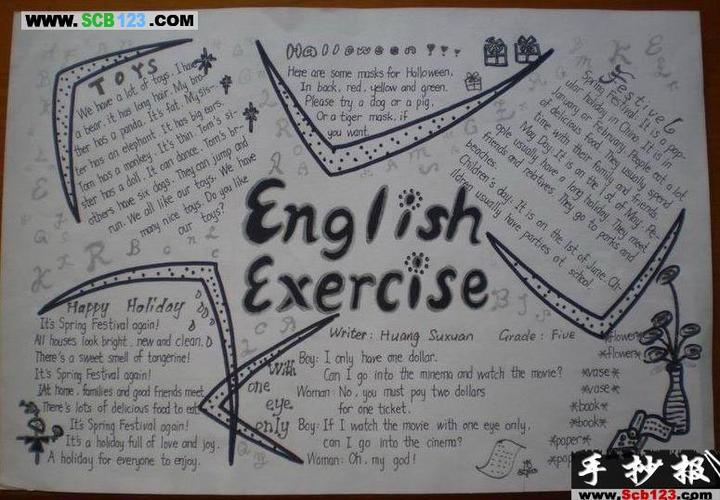 www.SCB123.com
TOYS
We have a lot of toys. I have
a bear, it has long hair. My bro-
ther has a panda. It's fat. My sis-
ter has an elephant. It has big ears.
Tom has a monkey. It's thin. Tom's si-
ster has a doll. It can dance. Tom's br-
others have six dogs. They can jump and
run. We all like our toys. We have
many nice toys. Do you like
our toys?
Halloween ???
Here are some masks for Halloween.
In back, red, yellow and green.
Please try a dog or a pig,
Or a tiger mask, if
you want.
Festive
Spring Festival: It is a pop-
ular holiday in China. It is in
January or February. People eat a lot
of delicious food. They usually spend
time with their family and friends.
May Day: It is on the 1st of May. Pe-
ople usually have a long holiday. They meet
friends and reltives. They go to parks and
beaches.
Children's day: It is on the 1st of June. Ch-
ildren usually have parties at school.
English
Exercise
Writer: Huang Suxuan Grade: Five
Happy Holiday
It's Spring Festival again!
All houses look bright, new and clean.
There's a sweet smell of tangerine!
It's Spring Festival again!
At home, families and good friends meet.
There's lots of delicious food to eat.
It's Spring Festival again!
It's a holiday full of love and joy.
A holiday for everyone to enjoy.
With
one
eye
only
Boy: I only have one dollar.
Can I go into the minema and watch the movie?
Woman: No, you must pay two dollars
for one ticket.
Boy: If I watch the movie with one eye only,
can I go into the cinema?
Woman: Oh, my god!
*flower*
*flower*
*vase*
*vase*
*book*
*book*
*paper*
手抄报
www.Scb123.com